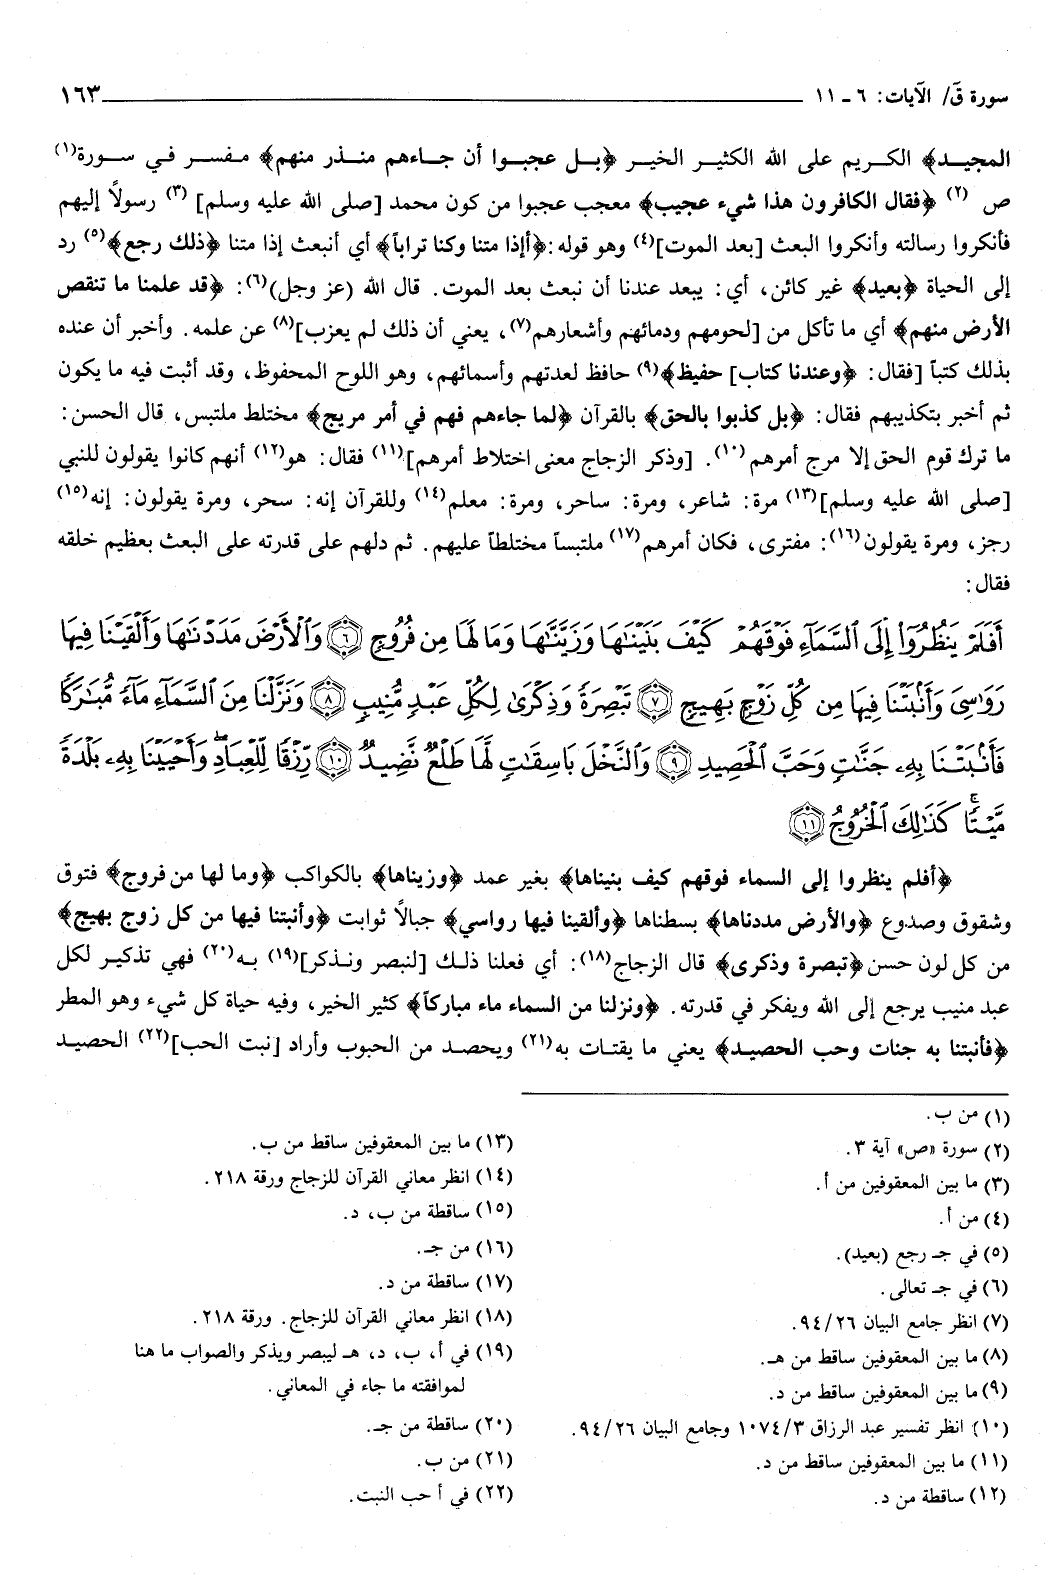 سورة قَ/ الآيات: ٦ ـ ١١ ١٦٣
المجيد﴾ الكريم على الله الكثير الخير ﴿بل عجبوا أن جاءهم منذر منهم﴾ مفسر في سورة(١)
ص (٢) ﴿فقال الكافرون هذا شيء عجيب﴾ معجب عجبوا من كون محمد [صلى الله عليه وسلم] (٣) رسولاً إليهم
فأنكروا رسالته وأنكروا البعث [بعد الموت](٤) وهو قوله: ﴿أإذا متنا وكنا تراباً﴾ أي أنبعث إذا متنا ﴿ذلك رجع﴾(٥) رد
إلى الحياة ﴿بعيد﴾ غير كائن، أي: يبعد عندنا أن نبعث بعد الموت. قال الله (عز وجل)(٦): ﴿قد علمنا ما تنقص
الأرض منهم﴾ أي ما تأكل من [لحومهم ودمائهم وأشعارهم(٧)، يعني أن ذلك لم يعزب](٨) عن علمه. وأخبر أن عنده
بذلك كتباً [فقال: ﴿وعندنا كتاب] حفيظ﴾(٩) حافظ لعدتهم وأسمائهم، وهو اللوح المحفوظ، وقد أثبت فيه ما يكون
ثم أخبر بتكذيبهم فقال: ﴿بل كذبوا بالحق﴾ بالقرآن ﴿لما جاءهم فهم في أمر مريج﴾ مختلط ملتبس، قال الحسن:
ما ترك قوم الحق إلا مرج أمرهم(١٠). [وذكر الزجاج معنى اختلاط أمرهم](١١) فقال: هو(١٢) أنهم كانوا يقولون للنبي
[صلى الله عليه وسلم](١٣) مرة: شاعر، ومرة: ساحر، ومرة: معلم(١٤) وللقرآن إنه: سحر، ومرة يقولون: إنه(١٥)
رجز، ومرة يقولون(١٦): مفترى، فكان أمرهم(١٧) ملتبساً مختلطاً عليهم. ثم دلهم على قدرته على البعث بعظيم خلقه
فقال:
أَفَلَمْ يَنظُرُوٓا۟ إِلَى ٱلسَّمَآءِ فَوْقَهُمْ كَيْفَ بَنَيْنَٰهَا وَزَيَّنَّٰهَا وَمَا لَهَا مِن فُرُوجٍ ﴿٦﴾ وَٱلْأَرْضَ مَدَدْنَٰهَا وَأَلْقَيْنَا فِيهَا
رَوَٰسِىَ وَأَنۢبَتْنَا فِيهَا مِن كُلِّ زَوْجٍۭ بَهِيجٍ ﴿٧﴾ تَبْصِرَةً وَذِكْرَىٰ لِكُلِّ عَبْدٍ مُّنِيبٍ ﴿٨﴾ وَنَزَّلْنَا مِنَ ٱلسَّمَآءِ مَآءً مُّبَٰرَكًا
فَأَنۢبَتْنَا بِهِۦ جَنَّٰتٍ وَحَبَّ ٱلْحَصِيدِ ﴿٩﴾ وَٱلنَّخْلَ بَاسِقَٰتٍ لَّهَا طَلْعٌ نَّضِيدٌ ﴿١٠﴾ رِّزْقًا لِّلْعِبَادِۖ وَأَحْيَيْنَا بِهِۦ بَلْدَةً
مَّيْتًاۚ كَذَٰلِكَ ٱلْخُرُوجُ ﴿١١﴾
﴿أفلم ينظروا إلى السماء فوقهم كيف بنيناها﴾ بغير عمد ﴿وزيناها﴾ بالكواكب ﴿وما لها من فروج﴾ فتوق
وشقوق وصدوع ﴿والأرض مددناها﴾ بسطناها ﴿وألقينا فيها رواسي﴾ جبالاً ثوابت ﴿وأنبتنا فيها من كل زوج بهيج﴾
من كل لون حسن ﴿تبصرة وذكرى﴾ قال الزجاج(١٨): أي فعلنا ذلك [لنبصر ونذكر](١٩) به(٢٠) فهي تذكير لكل
عبد منيب يرجع إلى الله ويفكر في قدرته. ﴿ونزلنا من السماء ماء مباركاً﴾ كثير الخير، وفيه حياة كل شيء وهو المطر
﴿فأنبتنا به جنات وحب الحصيد﴾ يعني ما يقتات به(٢١) ويحصد من الحبوب وأراد [نبت الحب](٢٢) الحصيد
(١) من ب.
(٢) سورة «ص» آية ٣.
(٣) ما بين المعقوفين من أ.
(٤) من أ.
(٥) في جـ رجع (بعيد).
(٦) في جـ تعالى.
(٧) انظر جامع البيان ٢٦/٩٤.
(٨) ما بين المعقوفين ساقط من هـ.
(٩) ما بين المعقوفين ساقط من د.
(١٠) انظر تفسير عبد الرزاق ٣/١٠٧٤ وجامع البيان ٢٦/٩٤.
(١١) ما بين المعقوفين ساقط من د.
(١٢) ساقطة من د.
(١٣) ما بين المعقوفين ساقط من ب.
(١٤) انظر معاني القرآن للزجاج ورقة ٢١٨.
(١٥) ساقطة من ب، د.
(١٦) من جـ.
(١٧) ساقطة من د.
(١٨) انظر معاني القرآن للزجاج. ورقة ٢١٨.
(١٩) في أ، ب، د، هـ ليبصر ويذكر والصواب ما هنا
لموافقته ما جاء في المعاني.
(٢٠) ساقطة من جـ.
(٢١) من ب.
(٢٢) في أ حب النبت.